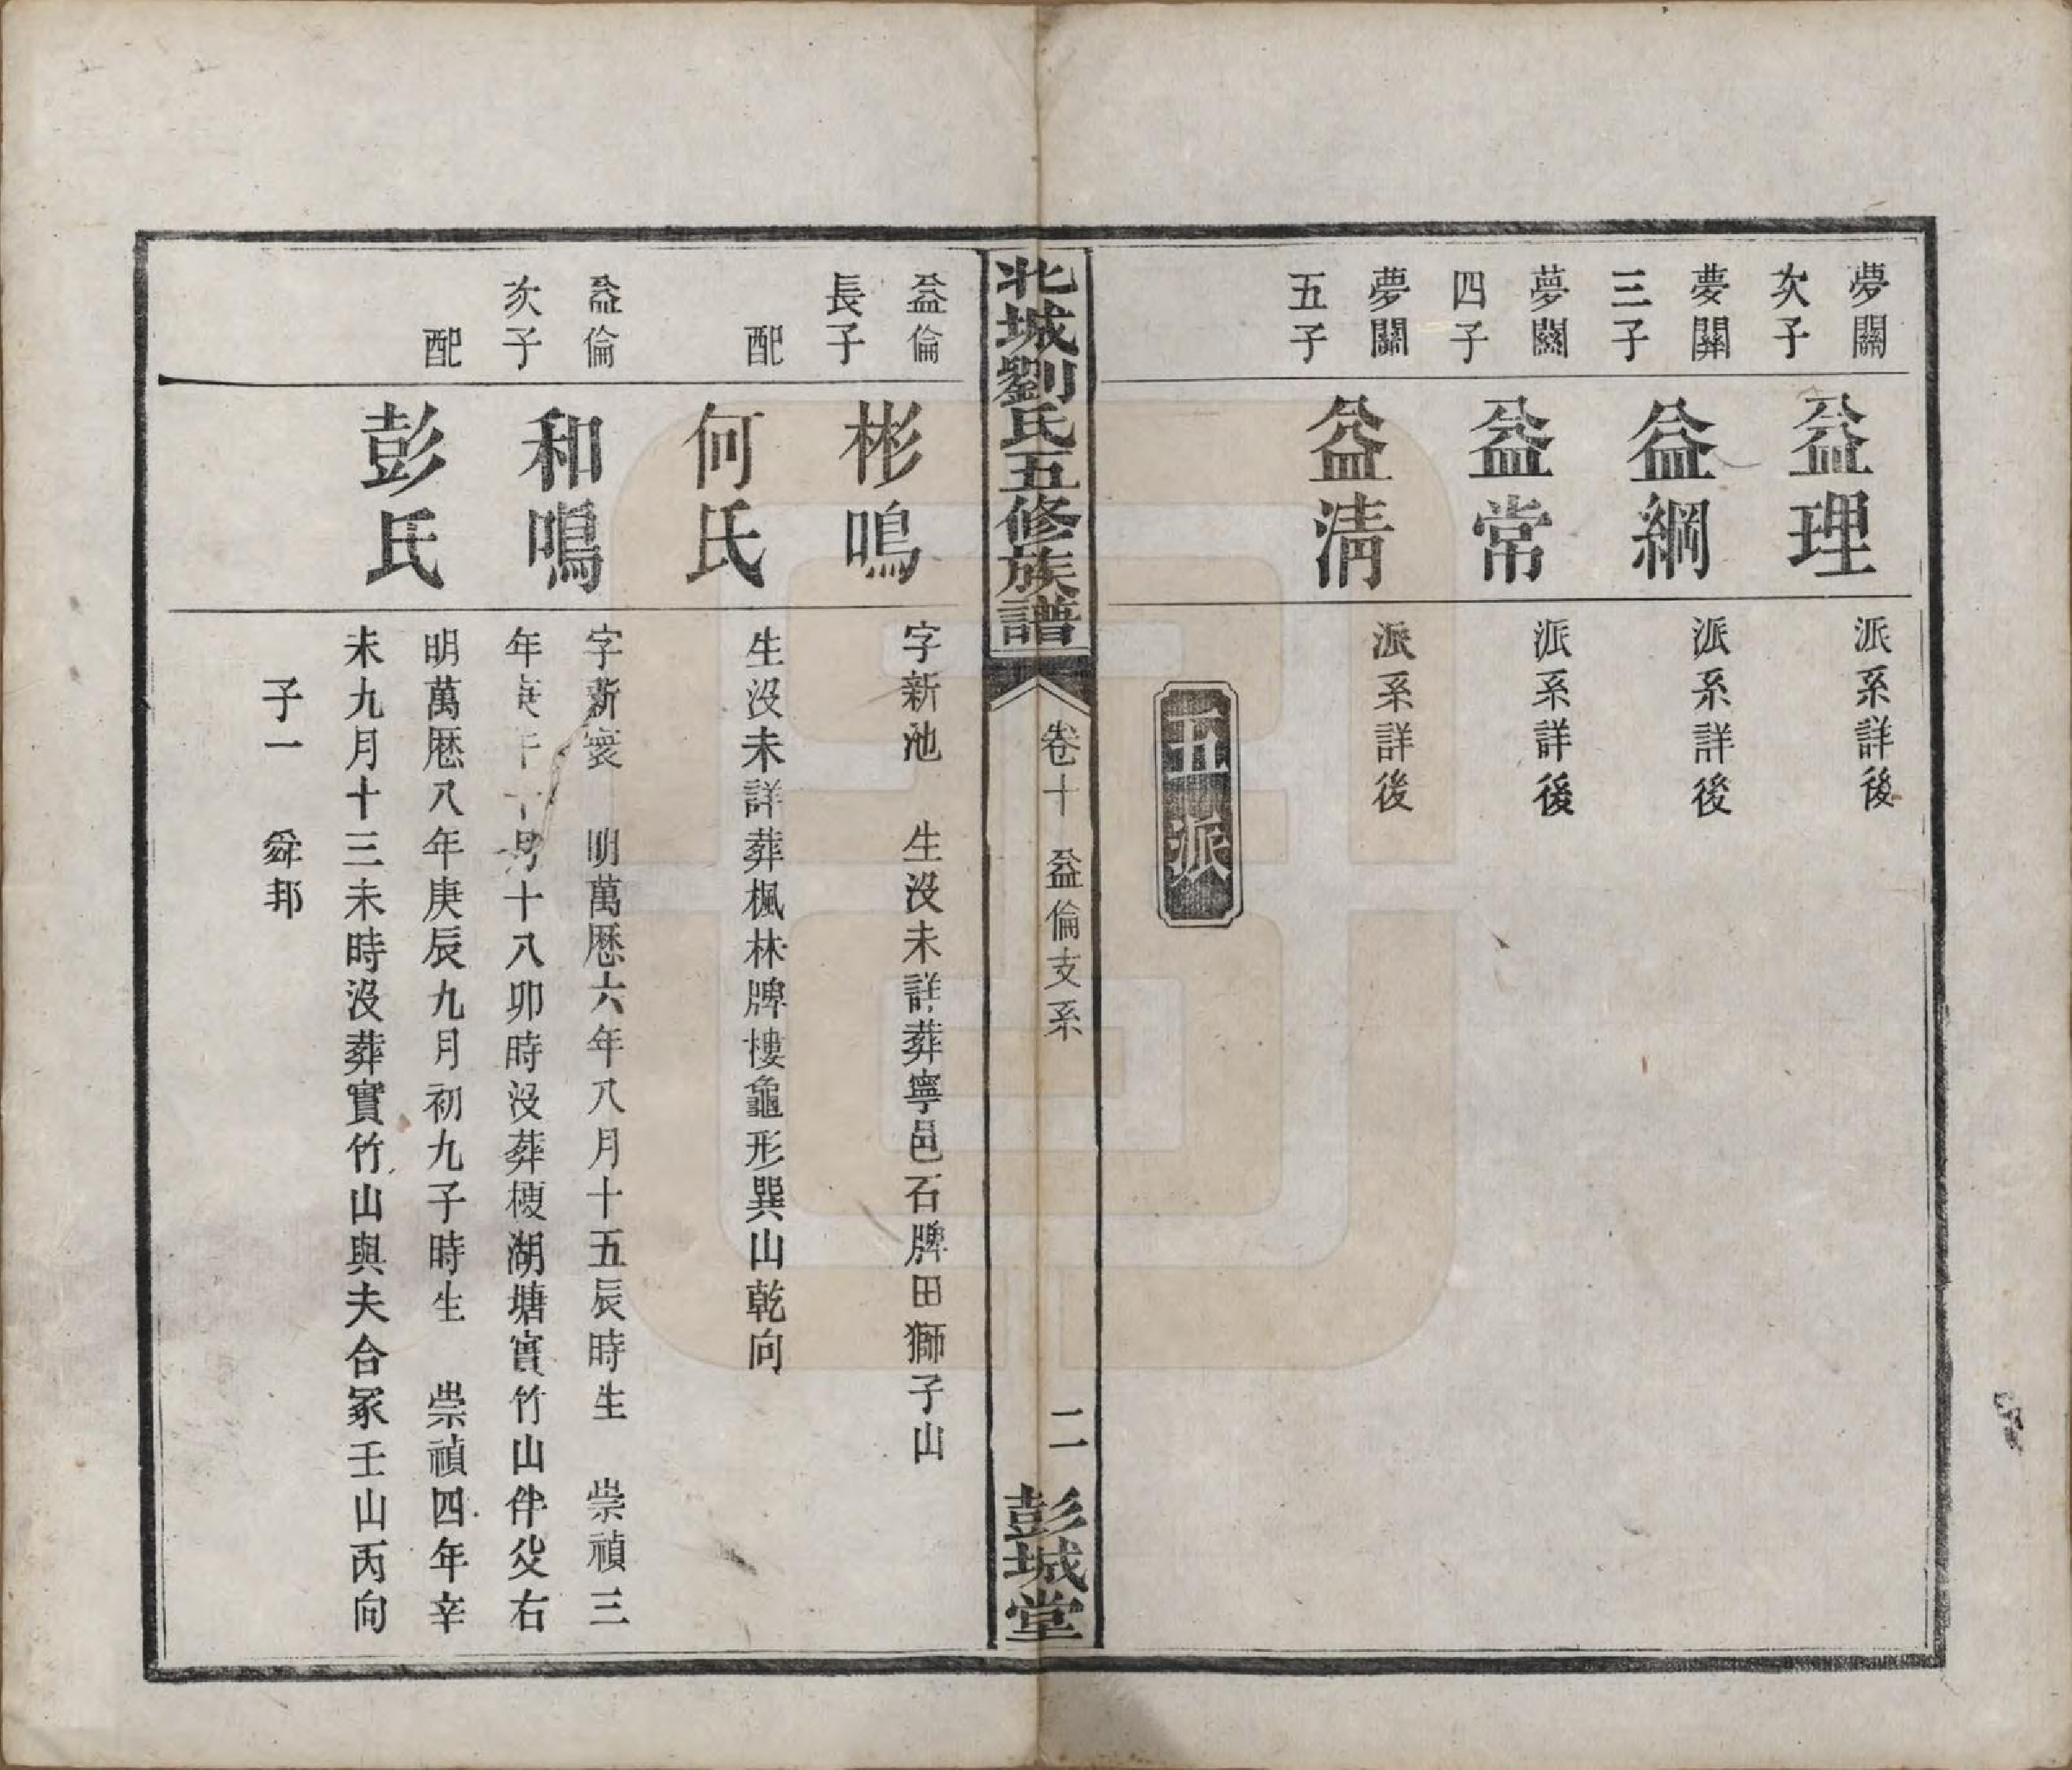 夢關
次子
益理
派系詳後
夢關
三子
益綱
派系詳後
夢關
四子
益常
派系詳後
夢關
五子
益淸
派系詳後
五派
北城劉氏五修族譜
卷十
益倫支系
二
彭城堂
益倫
長子
彬鳴
字新池 生沒未詳葬寧邑石牌田獅子山
配
何氏
生沒未詳葬楓林牌樓龜形巽山乾向
益倫
次子
和鳴
字新寰 明萬厯六年八月十五辰時生 崇禎三
年庚午十月十八卯時沒葬梗湖塘實竹山伴父右
配
彭氏
明萬厯八年庚辰九月初九子時生 崇禎四年辛
未九月十三未時沒葬實竹山與夫合冢壬山丙向
子一 舜邦